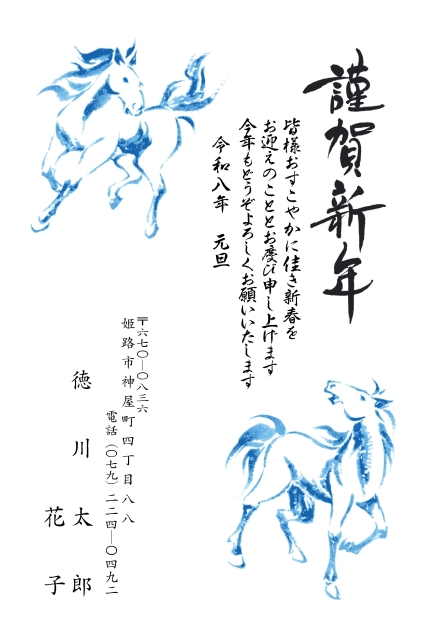 謹賀新年
皆様おすこやかに佳き新春を
お迎えのこととお慶び申し上げます
今年もどうぞよろしくお願いいたします
令和八年 元旦
〒六七〇—〇八三六
姫路市神屋町四丁目八八
電話(〇七九)二二四—〇四九二
徳川太郎
花子